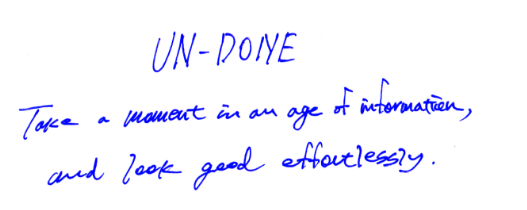 UN-DONE
Take a moment in an age of information,
and look good effortlessly.